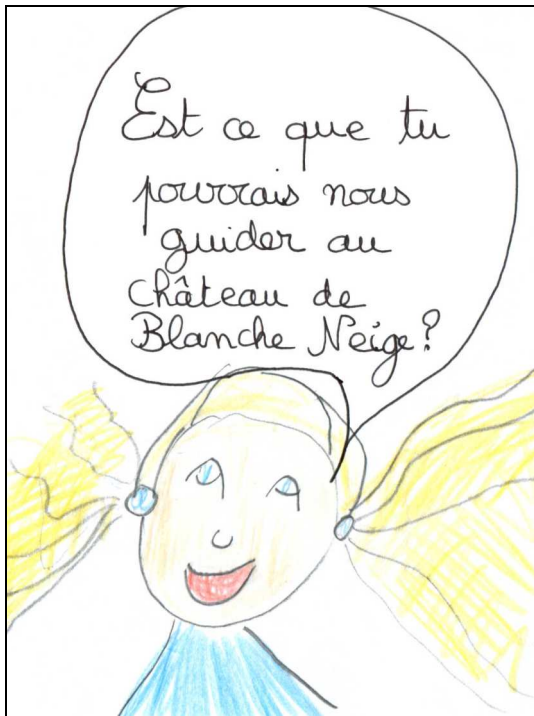 Est ce que tu
pourrais nous
guider au
château de
Blanche Neige?